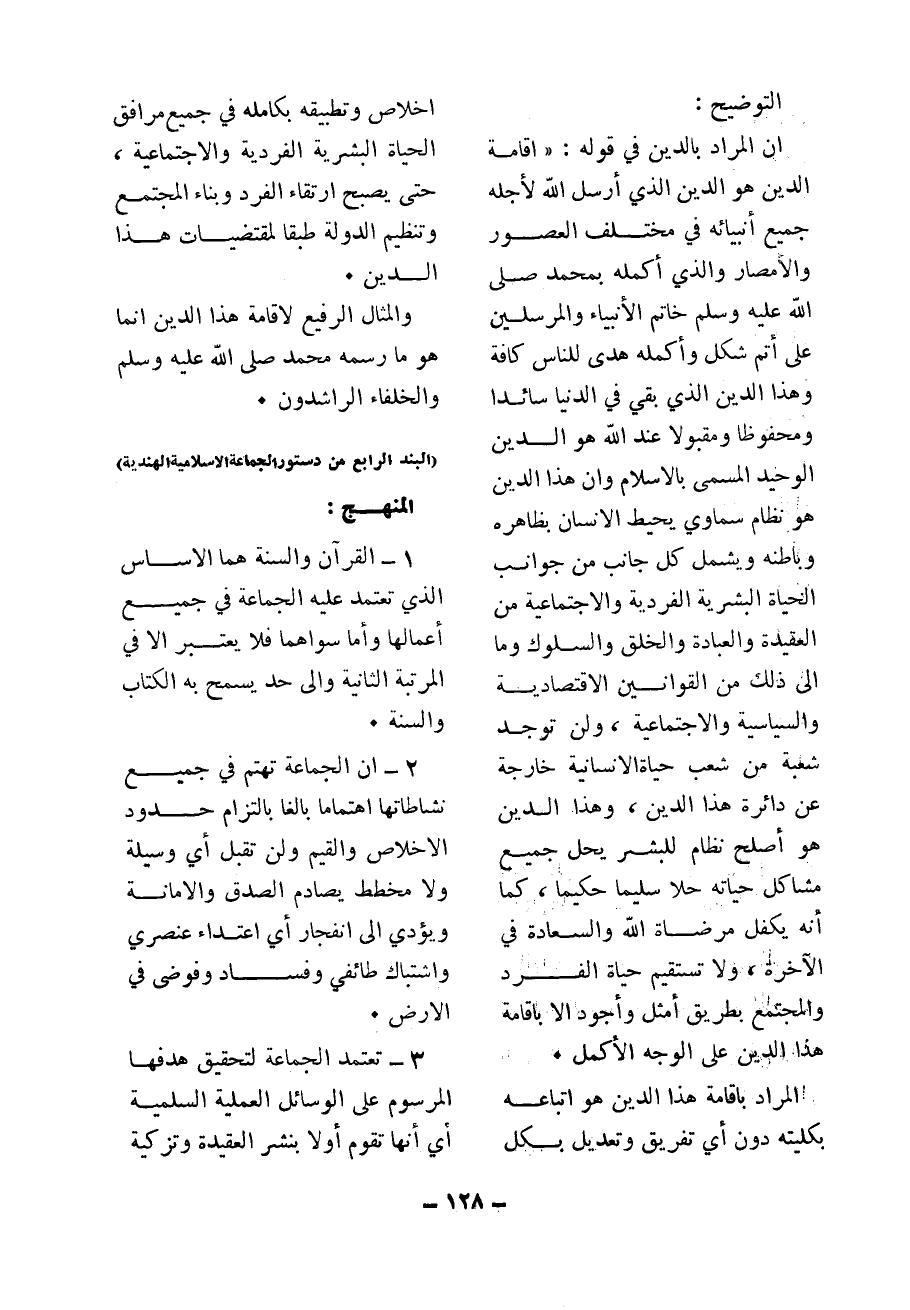 التوضيح :
ان المراد بالدين في قوله : « اقامة
الدين هو الدين الذي أرسل الله لأجله
جميع أنبيائه في مختلف العصور
والأمصار والذي أكمله بمحمد صلى
الله عليه وسلم خاتم الأنبياء والمرسلين
على أتم شكل وأكمله هدى للناس كافة
وهذا الدين الذي بقي في الدنيا سائدا
ومحفوظا ومقبولا عند الله هو الدين
الوحيد المسمى بالاسلام وان هذا الدين
هو نظام سماوي يحيط الانسان بظاهره
وباطنه ويشمل كل جانب من جوانب
الحياة البشرية الفردية والاجتماعية من
العقيدة والعبادة والخلق والسلوك وما
الى ذلك من القوانين الاقتصادية
والسياسية والاجتماعية ، ولن توجد
شعبة من شعب حياةالانسانية خارجة
عن دائرة هذا الدين ، وهذا الدين
هو أصلح نظام للبشر يحل جميع
مشاكل حياته حلا سليما حكيما ، كما
أنه يكفل مرضاة الله والسعادة في
الآخرة ، ولا تستقيم حياة الفرد
والمجتمع بطريق أمثل وأجود الا باقامة
هذا الدين على الوجه الأكمل •
المراد باقامة هذا الدين هو اتباعه
بكليته دون أي تفريق وتعديل بكل
اخلاص وتطبيقه بكامله في جميع مرافق
الحياة البشرية الفردية والاجتماعية ،
حتى يصبح ارتقاء الفرد وبناء المجتمع
وتنظيم الدولة طبقا لمقتضيات هذا
الدين •
والمثال الرفيع لاقامة هذا الدين انما
هو ما رسمه محمد صلى الله عليه وسلم
والخلفاء الراشدون •
(البند الرابع من دستورالجماعةالاسلاميةالهندية)
المنهج :
١ ـ القرآن والسنة هما الاساس
الذي تعتمد عليه الجماعة في جميع
أعمالها وأما سواهما فلا يعتبر الا في
المرتبة الثانية والى حد يسمح به الكتاب
والسنة •
٢ ـ ان الجماعة تهتم في جميع
نشاطاتها اهتماما بالغا بالتزام حدود
الاخلاص والقيم ولن تقبل أي وسيلة
ولا مخطط يصادم الصدق والامانة
ويؤدي الى انفجار أي اعتداء عنصري
واشتباك طائفي وفساد وفوضى في
الارض •
٣ ـ تعتمد الجماعة لتحقيق هدفها
المرسوم على الوسائل العملية السلمية
أي أنها تقوم أولا بنشر العقيدة وتزكية
ـ ١٢٨ ـ